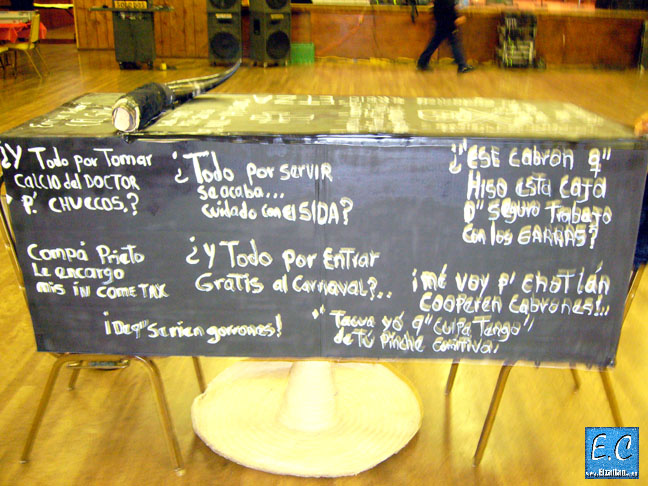 ¿Y Todo por Tomar
CALCIO del DOCTOR
P' CHUECOS,?
Compá Prieto
Le encargo
mis IN COME TAX
¿Todo por servir
se acaba...
cuidado con el SIDA?
¿Y Todo por Entrar
Gratis al Carnaval?..
¡De q' se rien gorrones!
¿"ESE CabRON q"
Hiso Esta Caja
D" SEguro Trabajo
Con los GARNAS?
¡me voy p' choTlán
COOPEREN Cabrones!...
yó q" culpa Tengo"
de Tú Pinche comitiva.
E.C